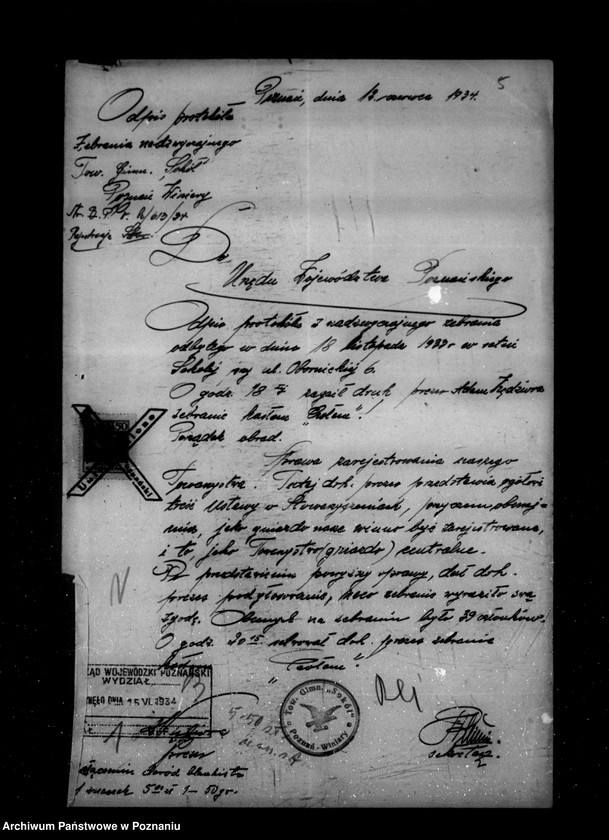 5
Poznań, dnia 13. czerwca 1934.
Odpis protokółu
Zebrania nadzwyczajnego
Tow. Gimn. "Sokół"
Poznań Winiary
Do
Urzędu Wojewódstwa Poznańskiego
Odpis protokółu z nadzwyczajnego zebrania
odbytego w dniu 18 listopada 1933 r w salni
Sokolej przy ul. Obornickiej 6.
O godz. 18 zagaił druh prezes Adam
zebranie hasłem "Czołem"!
Porządek obrad.
Sprawa zarejestrowania naszego
Towarzystwa. Tutaj dh. prezes przedstawia
treść Ustawy o Stowarzyszeniach, przyczem
jako gniazdo nasze winno być zarejestrowane,
i to, jako Towarzystwo (gniazdo) centralne.
Po przedstawieniu powyższej sprawy, dał dh.
prezes pod głosowanie, zebranie wyraziło swą
zgodę. Obecnych na zebraniu było 39 członków.
O godz. 20 15 dh. prezes zebranie
hasłem "Czołem"
URZĄD WOJEWÓDZKI POZNAŃSKI
WYDZIAŁ
DNIA 15 VI. 1934
Tow. Gimn. "Sokół"
Poznań - Winiary
Prezes
sekretarz
5 zł 1 - 50 gr.
Archiwum Państwowe w Poznaniu